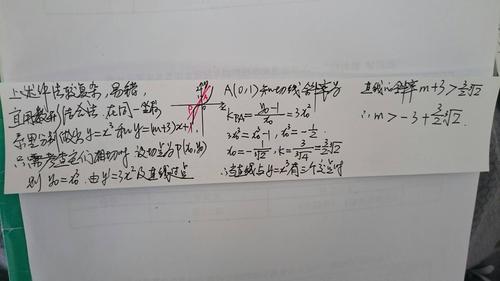 上述作法较复杂,易错,
宜用数形结合法.在同一坐标
系里分别做出y=x³和y=(m+3)x+1
只需考虑它们相切时 设切点为P(x₀,y₀)
则 y₀=x₀³. 由y'=3x²及直线过点
A(0,1)知切线斜率为
k_PA=(y₀-1)/x₀=3x₀²
3x₀³=x₀³-1, x₀³=-1/2.
x₀=-1/∛2, k=3/∛4=3/2∛2
∴当直线与y=x³有三个交点时
直线的斜率m+3>3/2∛2
∴m>-3+3/2∛2.